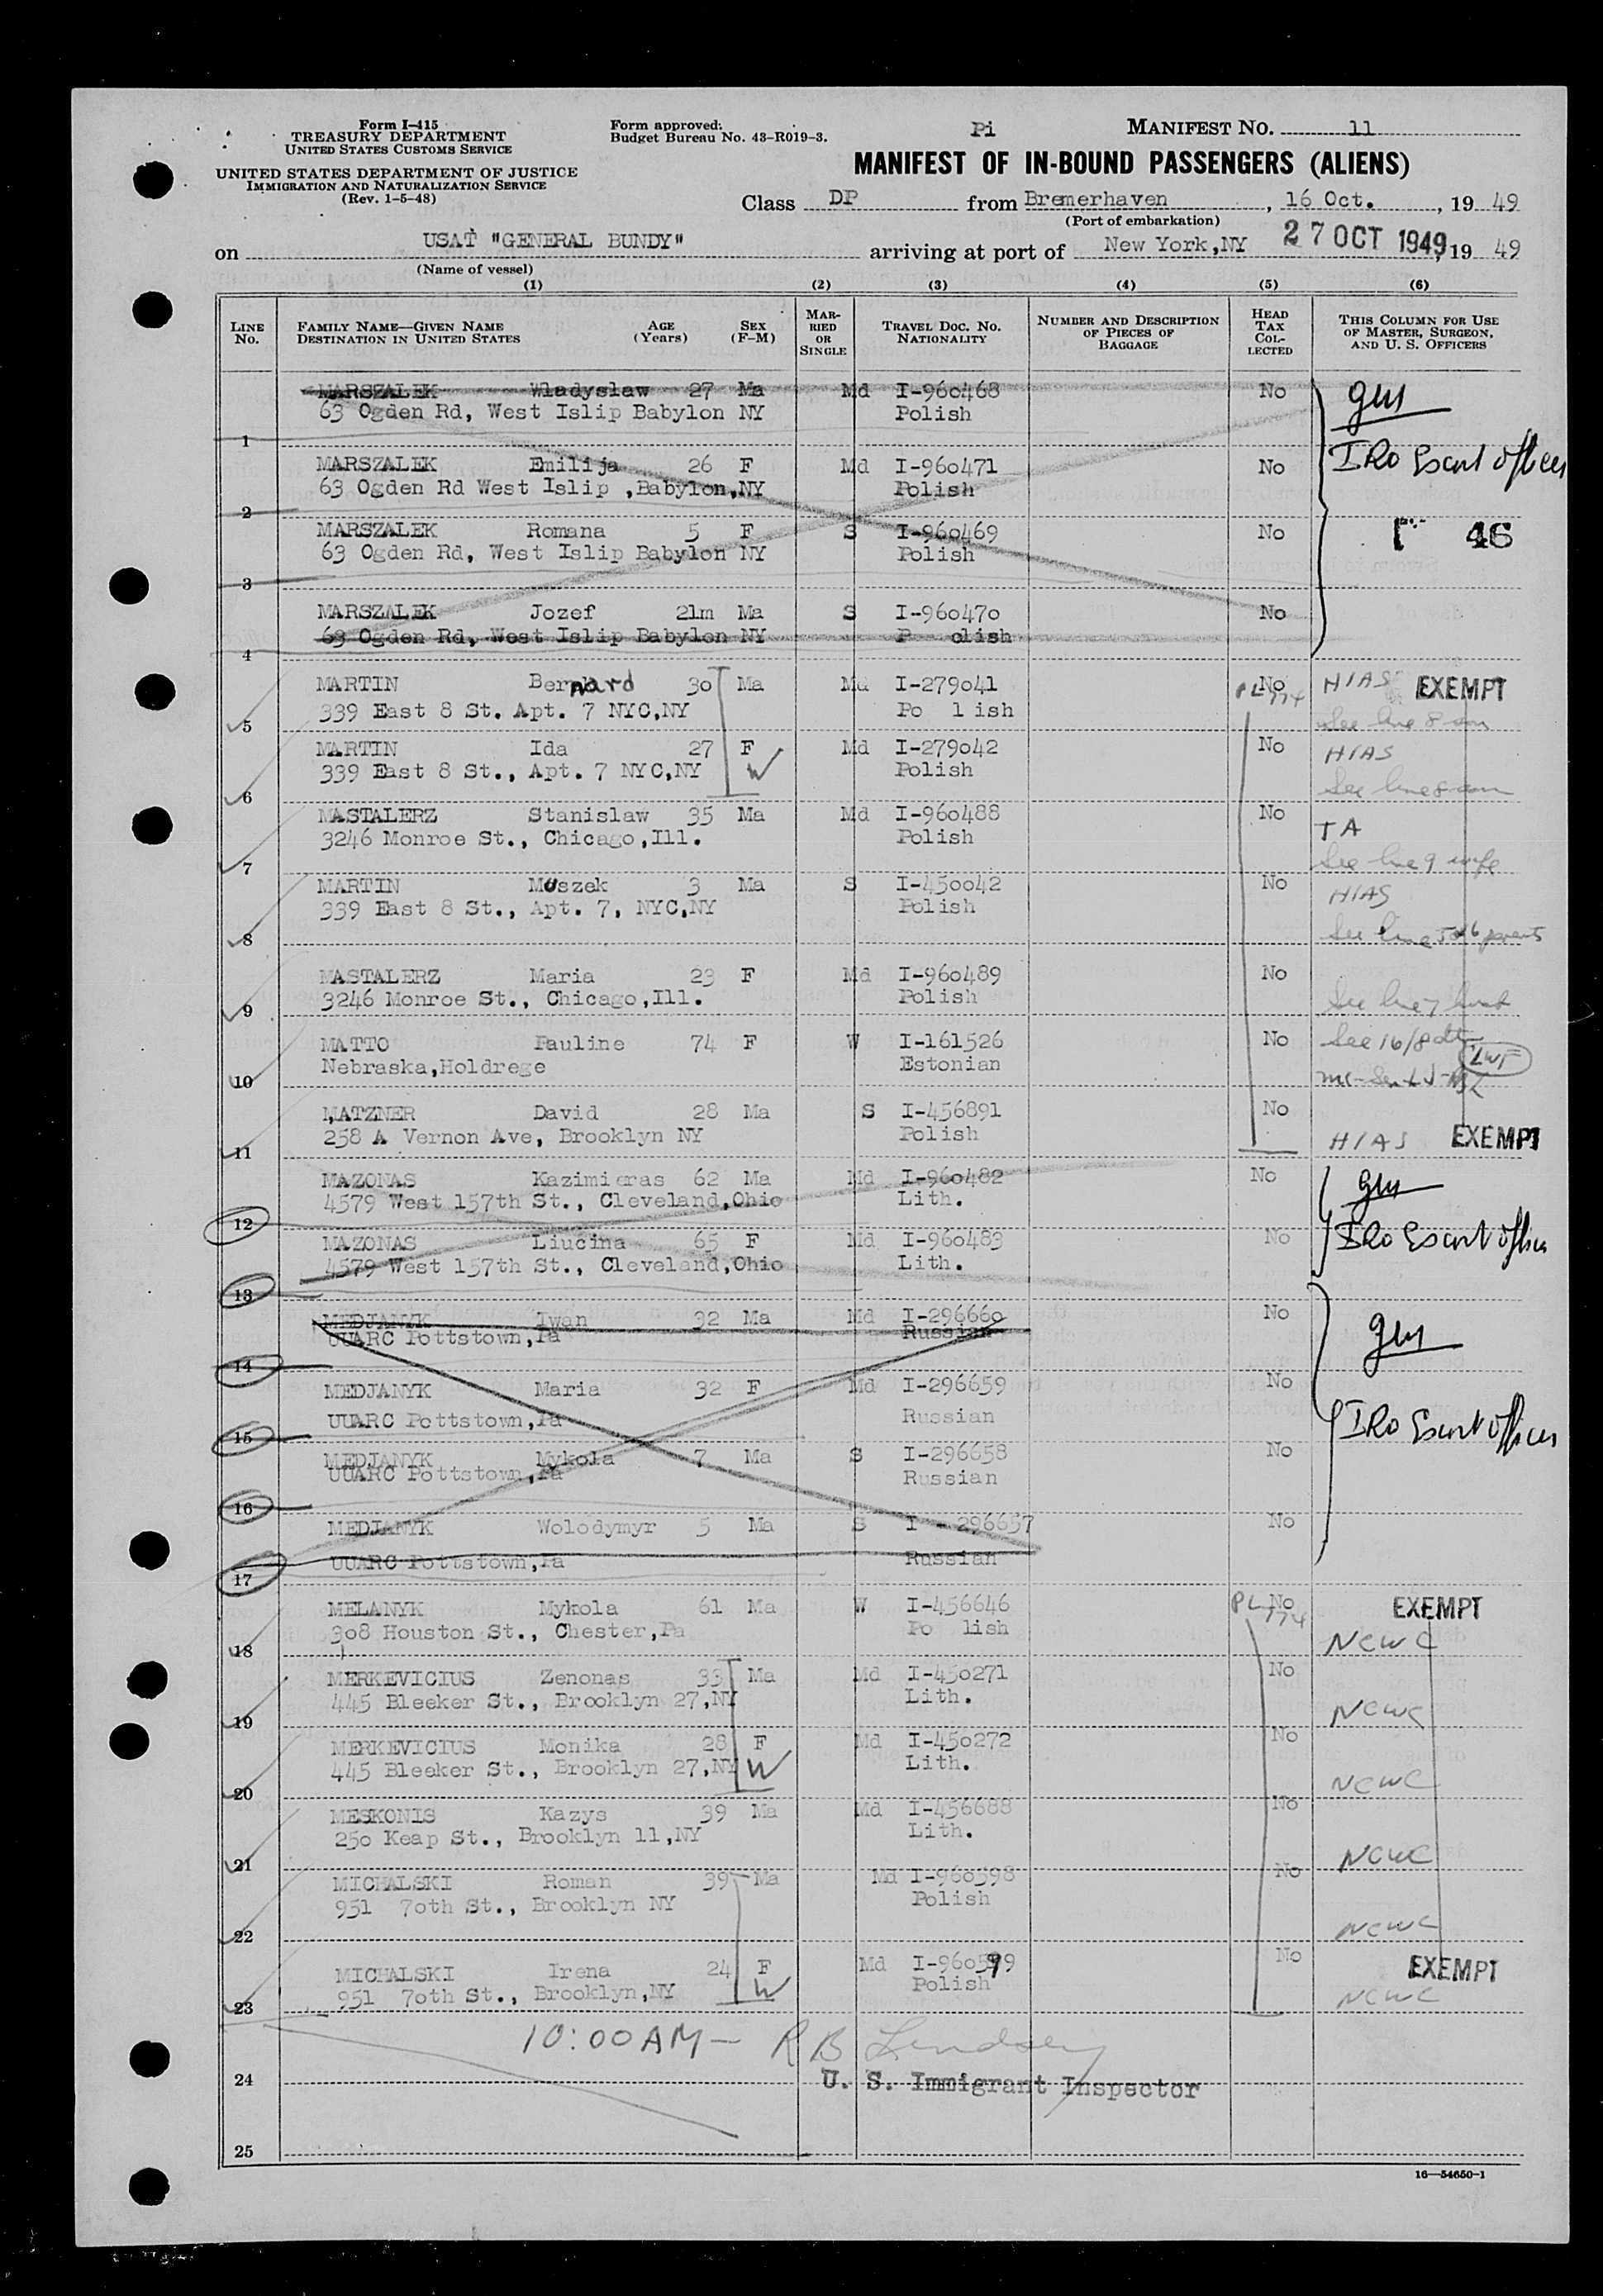 Form I-415
TREASURY DEPARTMENT
UNITED STATES CUSTOMS SERVICE
UNITED STATES DEPARTMENT OF JUSTICE
IMMIGRATION AND NATURALIZATION SERVICE
(Rev. 1-5-48)
Form approved.
Budget Bureau No. 43-R019-3.
Pi MANIFEST NO. 11
MANIFEST OF IN-BOUND PASSENGERS (ALIENS)
Class DP from Bremerhaven, 16 Oct., 19 49
(Port of embarkation)
on USAT "GENERAL BUNDY" arriving at port of New York,NY 27 OCT 1949, 19 49
(Name of vessel)
(1) (2) (3) (4) (5) (6)
LINE No. FAMILY NAME—GIVEN NAME DESTINATION IN UNITED STATES AGE (Years) SEX (F-M) MARRIED OR SINGLE TRAVEL DOC. NO. NATIONALITY NUMBER AND DESCRIPTION OF PIECES OF BAGGAGE HEAD TAX COLLECTED THIS COLUMN FOR USE OF MASTER, SURGEON, AND U. S. OFFICERS
MARSZALEK Wladyslaw 27 Ma Md I-960468 No
63 Ogden Rd, West Islip Babylon NY Polish
1
MARSZALEK Emilija 26 F Md I-960471 No IRO Escort Officer
63 Ogden Rd West Islip ,Babylon,NY Polish
2
MARSZALEK Romana 5 F S I-960469 No 46
63 Ogden Rd, West Islip Babylon NY Polish
3
MARSZALEK Jozef 21m Ma S I-960470 No
63 Ogden Rd, West Islip Babylon NY P olish
4
MARTIN Bernard 30 Ma Md I-279041 PL 774 No HIAS EXEMPT
339 East 8 St. Apt. 7 NYC,NY Po l ish
5 See line 8 son
MARTIN Ida 27 F Md I-279042 No HIAS
339 East 8 St., Apt. 7 NYC,NY W Polish
6 See line 8 son
MASTALERZ Stanislaw 35 Ma Md I-960488 No TA
3246 Monroe St., Chicago,Ill. Polish
7 See line 9 wife
MARTIN Moszek 3 Ma S I-450042 No HIAS
339 East 8 St., Apt. 7, NYC,NY Polish
8 See line 5 & 6 parents
MASTALERZ Maria 23 F Md I-960489 No
3246 Monroe St., Chicago,Ill. Polish
9 See line 7
MATTO Pauline 74 F W I-161526 No See 16/8
Nebraska,Holdrege Estonian LWF
10
MATZNER David 28 Ma S I-456891 No
258 A Vernon Ave, Brooklyn NY Polish HIAS EXEMPT
11
MAZONAS Kazimieras 62 Ma Md I-960482 No
4579 West 157th St., Cleveland,Ohio Lith.
12
MAZONAS Liucina 65 F Md I-960483 No IRO Escort Officer
4579 West 157th St., Cleveland,Ohio Lith.
13
MEDJANYK Iwan 32 Ma Md I-296660 No
UUARC Pottstown,Pa Russian
14
MEDJANYK Maria 32 F Md I-296659 No
UUARC Pottstown,Pa Russian IRO Escort Officer
15
MEDJANYK Mykola 7 Ma S I-296658 No
UUARC Pottstown,Pa Russian
16
MEDJANYK Wolodymyr 5 Ma S I - 296657 No
UUARC Pottstown,Pa Russian
17
MELANYK Mykola 61 Ma W I-456646 PL 774 No EXEMPT
308 Houston St., Chester,Pa Po lish NCWC
18
MERKEVICIUS Zenonas 33 Ma Md I-450271 No
445 Bleeker St., Brooklyn 27,NY Lith. NCWC
19
MERKEVICIUS Monika 28 F Md I-450272 No
445 Bleeker St., Brooklyn 27,NY W Lith. NCWC
20
MESKONIS Kazys 39 Ma Md I-456688 No
250 Keap St., Brooklyn 11,NY Lith. NCWC
21
MICHALSKI Roman 39 Ma Md I-960598 No
951 70th St., Brooklyn NY Polish NCWC
22
MICHALSKI Irena 24 F Md I-960599 No EXEMPT
951 70th St., Brooklyn,NY W Polish NCWC
23
10:00AM— R B Lindsey
24 U. S. Immigrant Inspector
25
16—54650-1